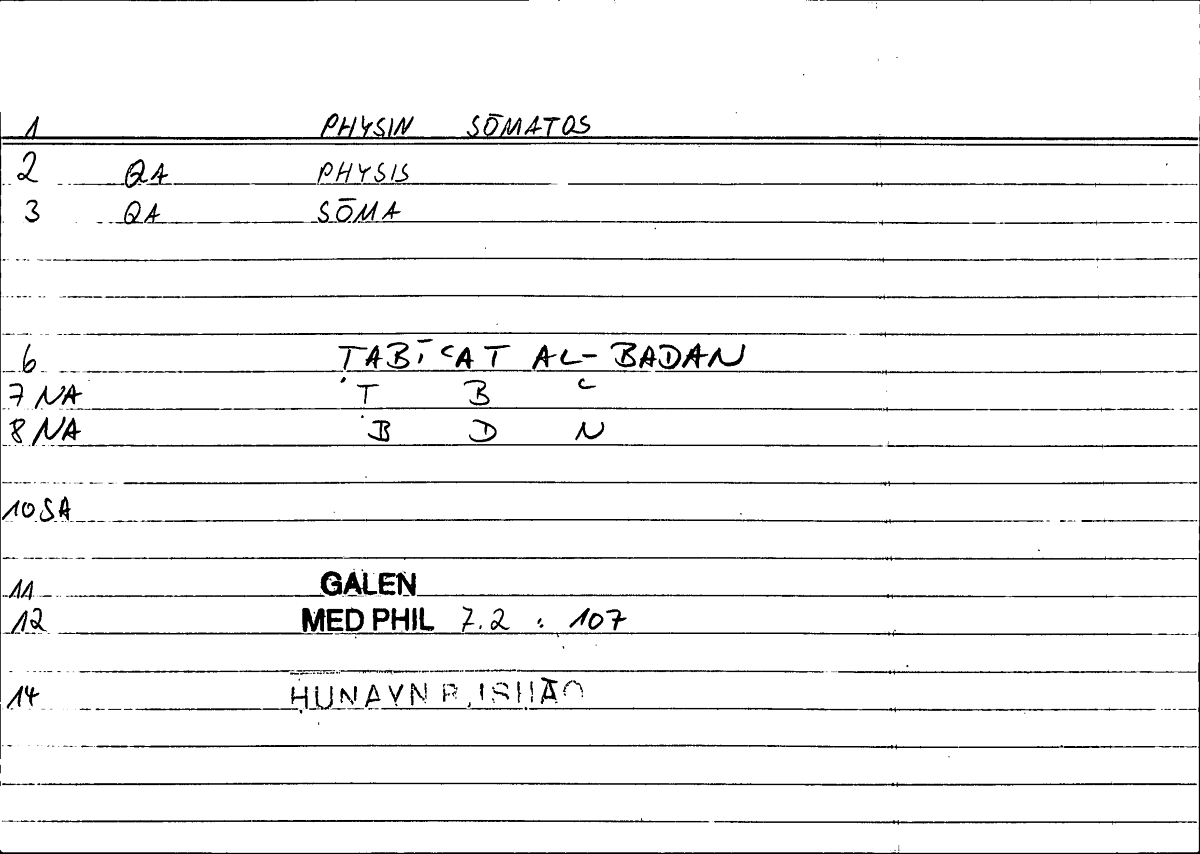 1 PHYSIN SŌMATOS
2 QA PHYSIS
3 QA SŌMA
6 ṬABĪʿAT AL-BADAN
7 NA Ṭ B ʿ
8 NA B D N
10 SA
11 GALEN
12 MED PHIL 7.2 : 107
14 ḤUNAYN B. ISḤĀQ